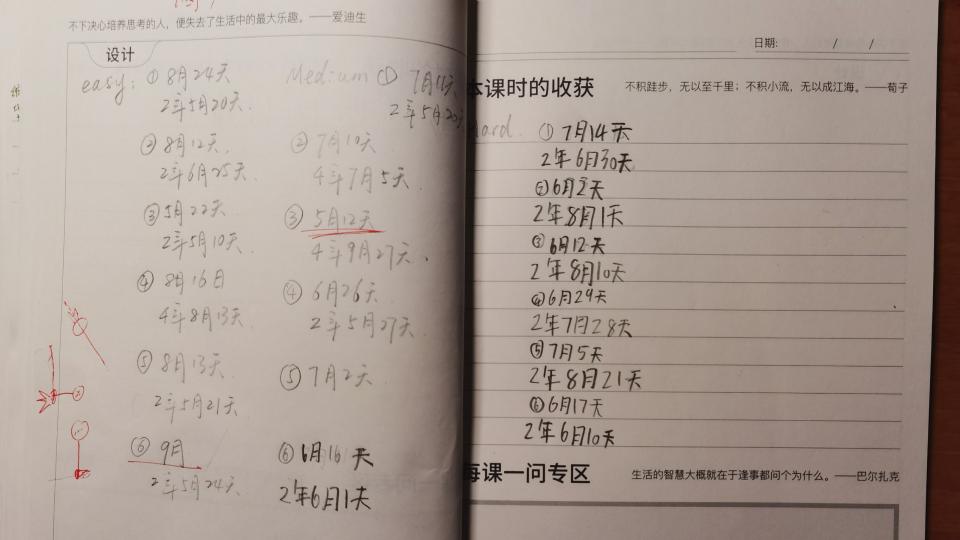 不下决心培养思考的人，便失去了生活中的最大乐趣。——爱迪生
设计
easy: ① 8月24天
2年5月20天
② 8月12天
2年6月25天
③ 5月22天
2年5月10天
④ 8月16日
4年8月13天
⑤ 8月13天
2年5月21天
⑥ 9月
2年5月24天
Medium ① 7月4天
2年5月20天
② 7月10天
4年7月5天
③ 5月12天
4年9月27天
④ 6月26天
2年5月27天
⑤ 7月2天
⑥ 6月16天
2年6月1天
日期: / /
本课时的收获
不积跬步，无以至千里；不积小流，无以成江海。——荀子
Hard. ① 7月14天
2年6月30天
② 6月2天
2年8月1天
③ 6月12天
2年8月10天
④ 6月29天
2年7月28天
⑤ 7月5天
2年8月21天
⑥ 6月17天
2年6月10天
每课一问专区
生活的智慧大概就在于逢事都问个为什么。——巴尔扎克